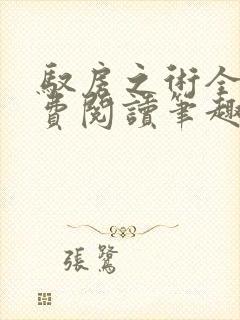 馭房之術全
費閱讀筆趣
張鷺